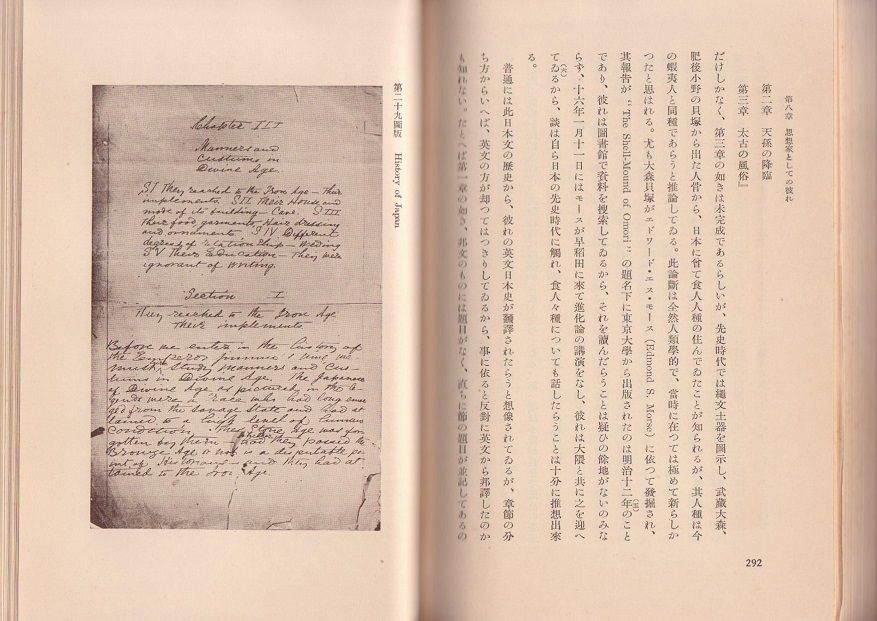 第八章 思想家としての彼れ
第二章 天孫の降臨
第三章 太古の風俗』
だけしかなく、第三章の如きは未完成であるらしいが、先史時代では繩文土器を圖示し、武藏大森、
肥後小野の貝塚から出た人骨から、日本に曾て食人人種の住んでゐたことが知られるが、其人種は今
の蝦夷人と同種であらうと推論してゐる。此論斷は全然人類學的で、當時に在つては極めて新らしか
つたと思はれる。尤も大森貝塚がエドワード・エス・モース (Edmond S. Morse) に依つて發掘され、
其報告が “The Shell-Mound of Omori” の題名下に東京大學から出版されたのは明治十二年のこと
であり、彼れは圖書館で資料を搜索してゐるから、それを讀んだらうことは疑ひの餘地がないのみな
らず、十六年一月十一日にはモースが早稻田に來て進化論の講演をなし、彼れは大隈と共に之を迎へ
てゐるから、(六)談は自ら日本の先史時代に觸れ、食人々種についても話したらうことは十分に推想出來
る。
普通には此日本文の歷史から、彼れの英文日本史が飜譯されたらうと想像されてゐるが、章節の分
ち方からいへば、英文の方が却つてはつきりしてゐるから、事に依ると反對に英文から邦譯したのか
も知れない。たとへば第一章の如き、邦文のものには題目がなく、直ちに節の題目が並記してあるの
292
第二十九圖版 History of Japan
Chapter III
Manners and
Customs in
Divine Age.
S I They reached to the Iron Age – their
implements. S II Their House and
mode of its building – Cave. S III
Their food, garments – Hair dressing
and ornaments. S IV Different
degrees of relationship – Weding
S V Their Education – They were
ignorant of writing.
Section I
They reached to the Iron Age
Their implements
Before we enter in the history of
the Emperor Jimmu's time we
must study manners and Cus-
toms in Divine Age. The Japanese
of Divine Age as pictured in the le-
gends were a race who had long emer
ged from the savage state and had at
tained to a high level of
condition. The Stone Age was for
gotten by them – whether had they passed the
Bronze Age or not is a disputable po
int of Historians – and they had at
tained to the Iron Age.